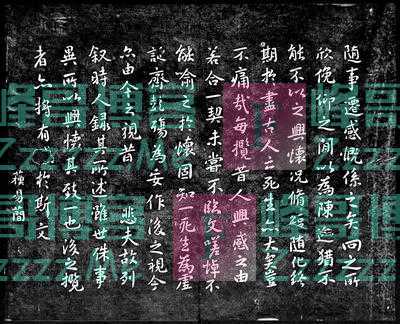 随事遷感慨係之矣向之所
欣俛仰之閒以為陳迹猶不
能不以之興懷況脩短随化終
期於盡古人云死生亦大矣豈
不痛哉每攬昔人興感之由
若合一契未嘗不臨文嗟悼不
能喻之於懷固知一死生為虛
誕齊彭殤為妄作後之視今
亦由今之視昔 悲夫故列
叙時人録其所述雖世殊事
異所以興懷其致一也後之攬
者亦將有 於斯文
蘇易簡